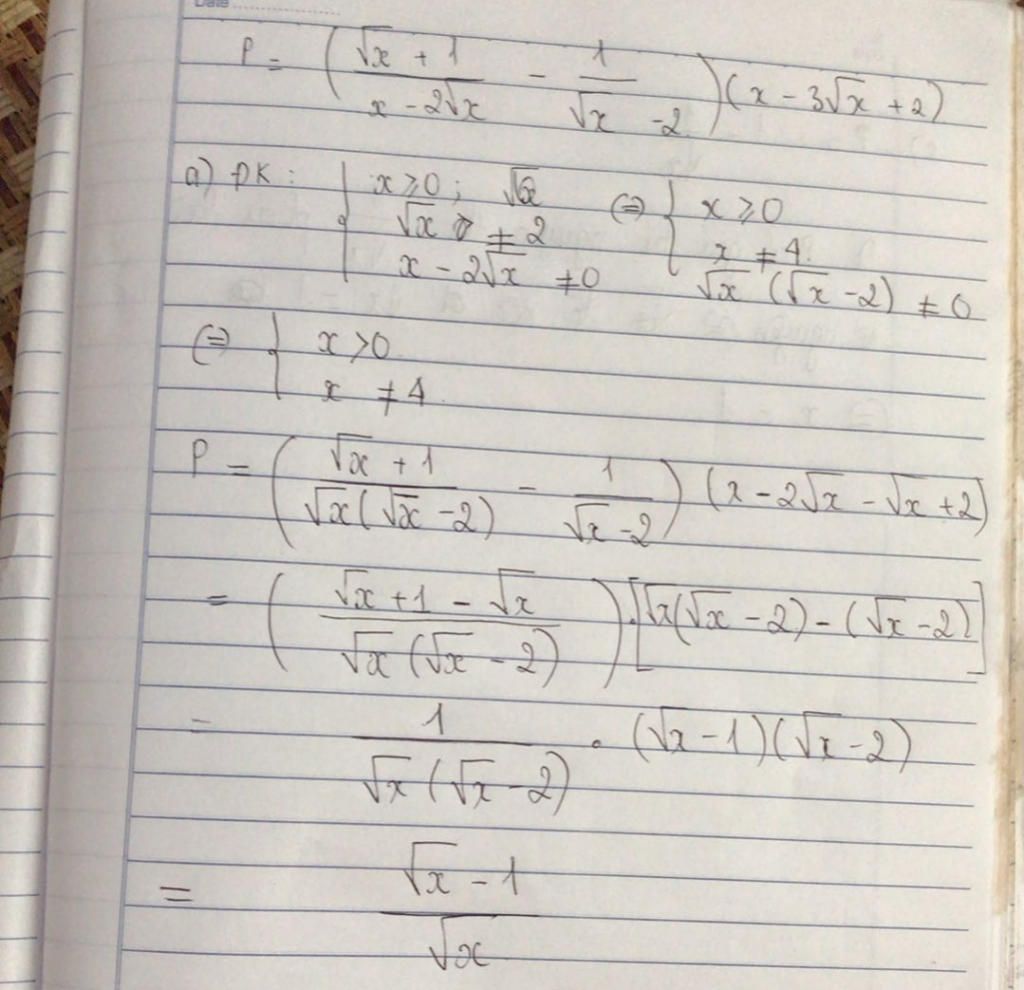 Date
P = ( (√x + 1)/(x - 2√x) - 1/(√x - 2) ) (x - 3√x + 2)
a) ĐK: { x ≥ 0 ; √x ≠ 2 ; x - 2√x ≠ 0 (=) { x ≥ 0 ; x ≠ 4. ; √x (√x - 2) ≠ 0
(=) { x > 0 ; x ≠ 4
P = ( (√x + 1)/(√x(√x - 2)) - 1/(√x - 2) ) (x - 2√x - √x + 2)
= ( (√x + 1 - √x)/(√x (√x - 2)) ) . [√x(√x - 2) - (√x - 2)]
= 1/(√x (√x - 2)) . (√x - 1)(√x - 2)
= (√x - 1)/√x